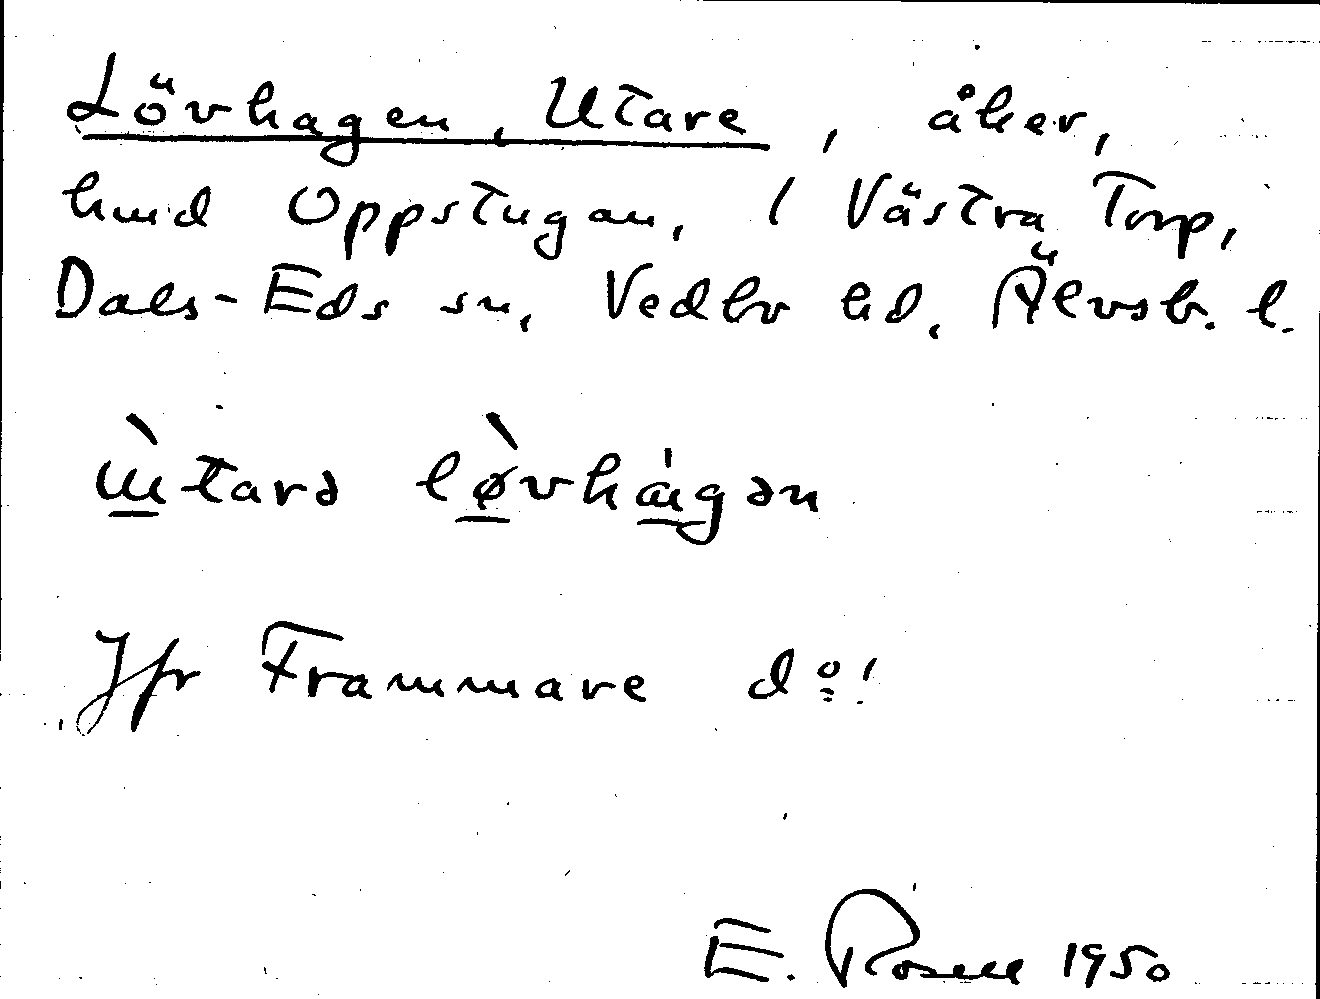 Lövhagen, Utare, åker,
hmd Oppstugan, 1 Västra Torp,
Dals-Eds sn, Vedbo hd, Älvsb. l.
ɯ̀tarə lø̀vhágən
Jfr Frammare dº!
E. Rosell 1950